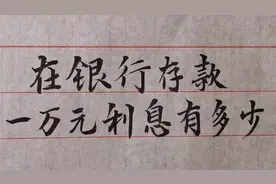 在银行存款
一万元利息有多少